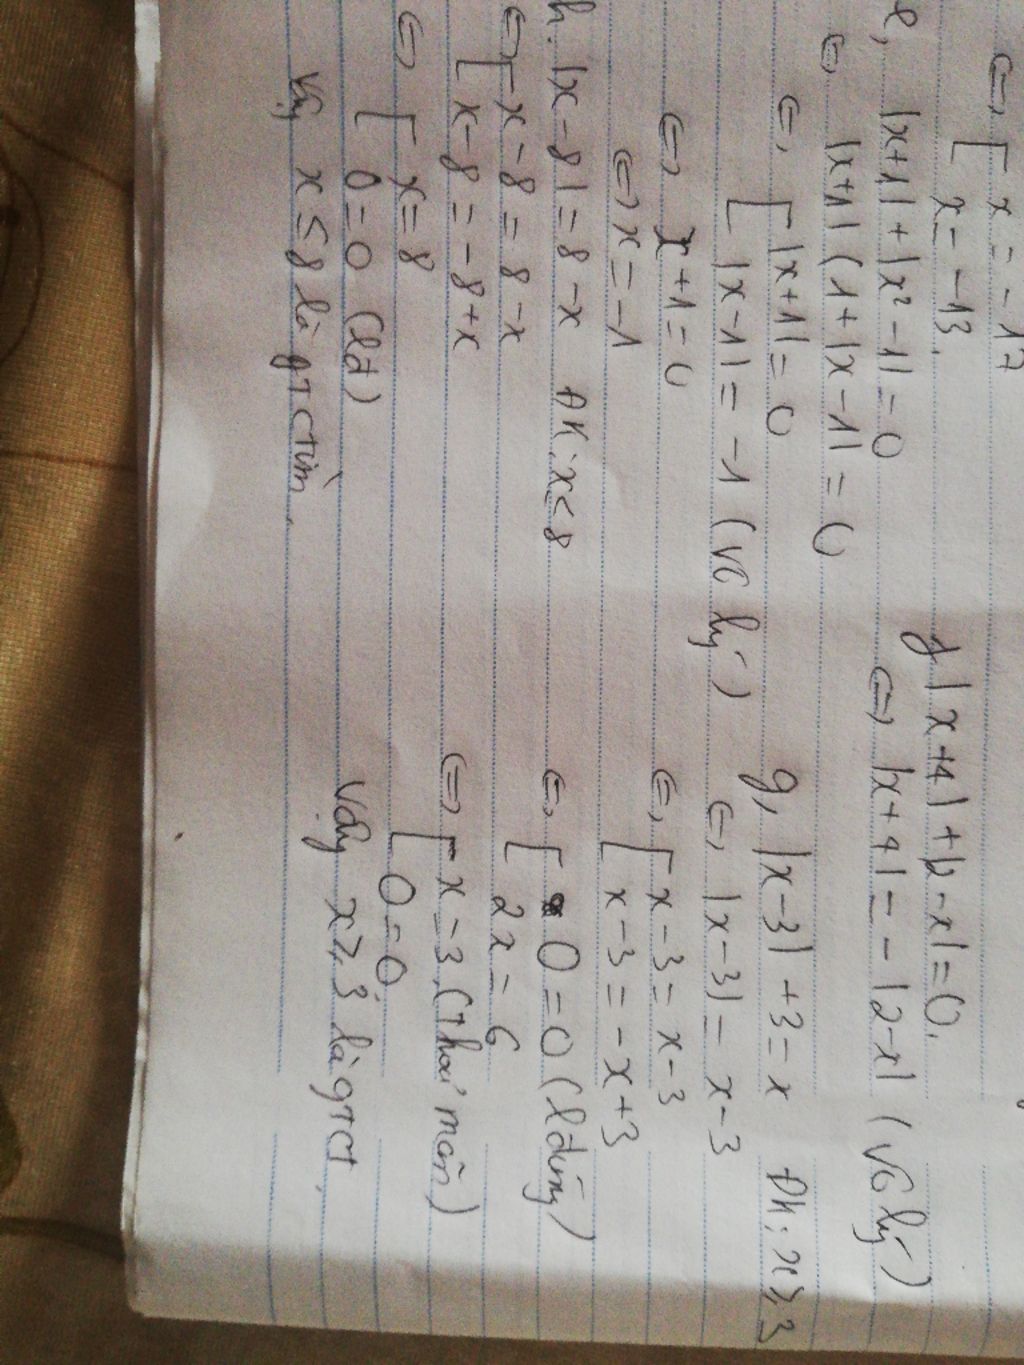 ⇔ [ x = -17
x = -13.
e, |x+1| + |x² - 1| = 0
⇔ |x+1| (1 + |x-1| = 0
⇔ [ |x+1| = 0
|x-1| = -1 (vô lý)
⇔ x+1 = 0
⇔ x = -1
h. |x-8| = 8-x ĐK: x<8
⇔ [ x-8 = 8-x
x-8 = -8+x
⇔ [ x = 8
0 = 0 (lđ)
Vậy x ≤ 8 là gтctìm.
f. |x+4| + |2-x| = 0.
⇔ |x+4| = -|2-x| (vô lý)
g, |x-3| + 3 = x ĐK: x ≥ 3
⇔ |x-3| = x-3
⇔ [ x-3 = x-3
x-3 = -x+3
⇔ [ 0 = 0 (lđúng)
2x = 6
⇔ [ x = 3 (thoả mãn)
0 = 0.
Vậy x ≥ 3 là gтcт.